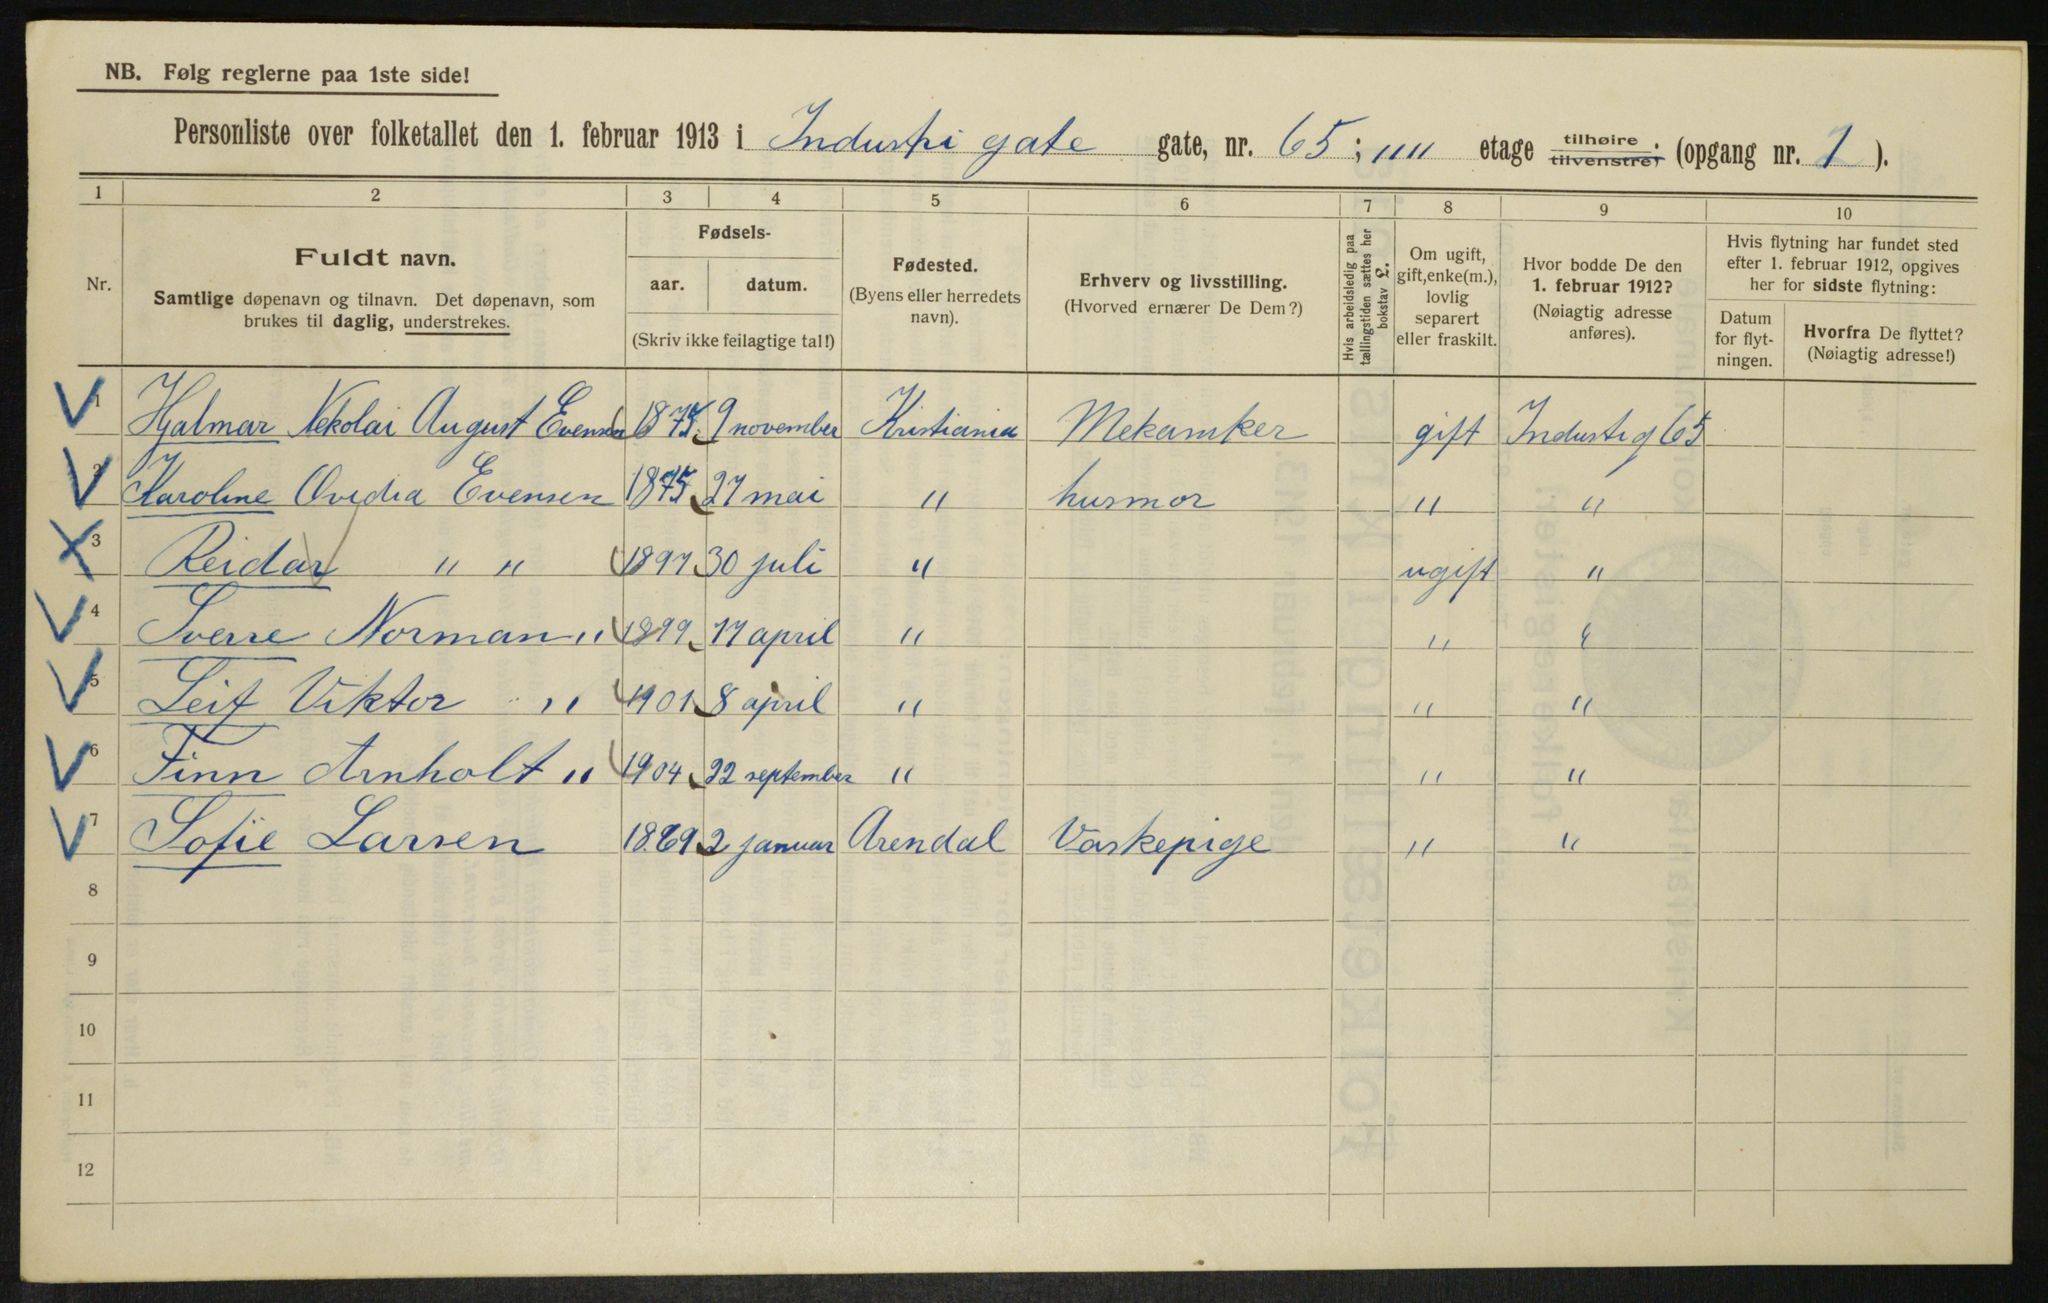 NB. Følg reglerne paa 1ste side!
Personliste over folketallet den 1. februar 1913 i Industri gate gate, nr. 65; ıııı etage tilhøire. tilvenstre) (opgang nr. 1).
1 2 3 4 5 6 7 8 9 10
Nr.
Fuldt navn.
Samtlige døpenavn og tilnavn. Det døpenavn, som
brukes til daglig, understrekes.
Fødsels-
aar. datum.
(Skriv ikke feilagtige tal!)
Fødested.
(Byens eller herredets
navn).
Erhverv og livsstilling.
(Hvorved ernærer De Dem?)
Hvis arbeidsledig paa
tællingstiden sættes her
bokstav £.
Om ugift,
gift, enke(m.),
lovlig
separert
eller fraskilt.
Hvor bodde De den
1. februar 1912?
(Nøiagtig adresse
anføres).
Hvis flytning har fundet sted
efter 1. februar 1912, opgives
her for sidste flytning:
Datum
for flyt-
ningen.
Hvorfra De flyttet?
(Nøiagtig adresse!)
1 Hjalmar Nekolai August Evensen 1875 9 november Kristiania Mekaniker gift Industig 65
2 Karoline Ovidia Evensen 1875 27 mai " husmor " "
3 Reidar " " 1897 30 juli " ugift "
4 Sverre Norman " 1899 17 april " " "
5 Leif Viktor " 1901 8 april " " "
6 Finn Arnholt " 1904 22 september " " "
7 Sofie Larsen 1869 2 januar Arendal Vaskepige " "
8
9
10
11
12